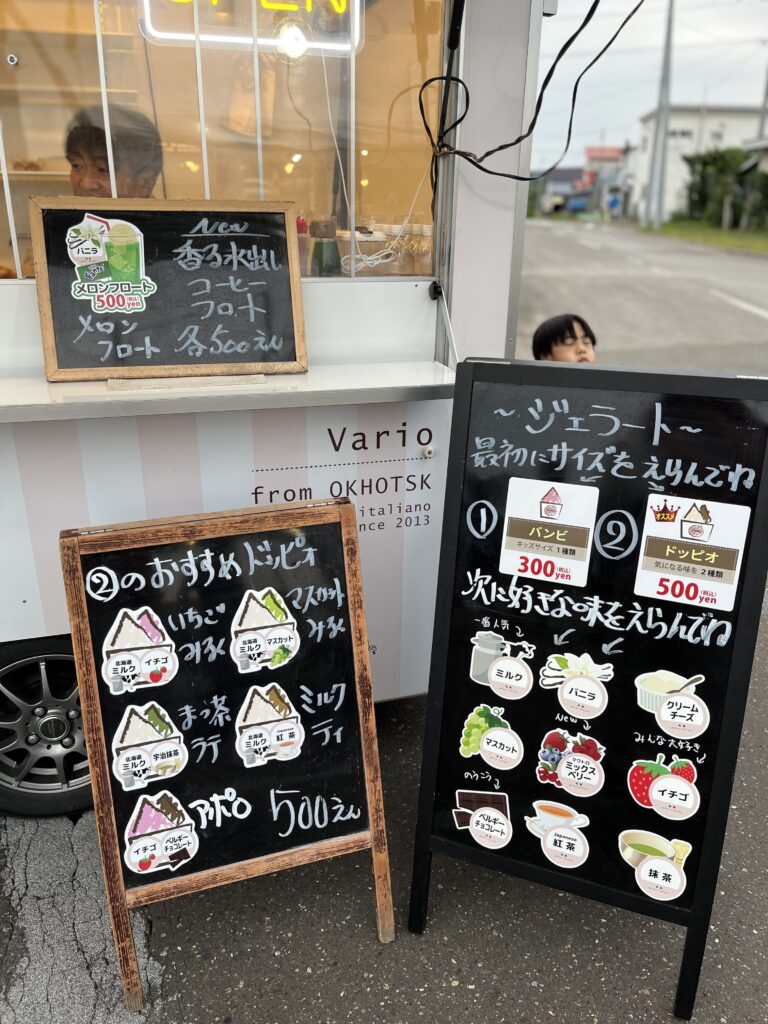 OPEN
バニラ
メロンフロート
500yen
(税込)
メロン
フロート
New
香る水出し
コーヒー
フロート
各500えん
Vario
from OKHOTSK
italiano
nce 2013
②のおすすめドッピオ
いちご
みるく
北海道
ミルク
イチゴ
マスカット
みるく
北海道
ミルク
マスカット
まっ茶
ラテ
北海道
ミルク
宇治抹茶
ミルク
ティ
北海道
ミルク
Japanese
紅茶
アポロ
イチゴ
ベルギー
チョコレート
500えん
~ジェラート~
最初にサイズをえらんでね
①
バンビ
キッズサイズ 1種類
300yen
(税込)
②
オススメ
ドッピオ
気になる味を2種類
500yen
(税込)
次に好きな味をえらんでね
一番人気
ミルク
バニラ
クリーム
チーズ
マスカット
New
クワトロ
ミックス
ベリー
みんな大好き
イチゴ
のうこう
ベルギー
チョコレート
Japanese
紅茶
抹茶